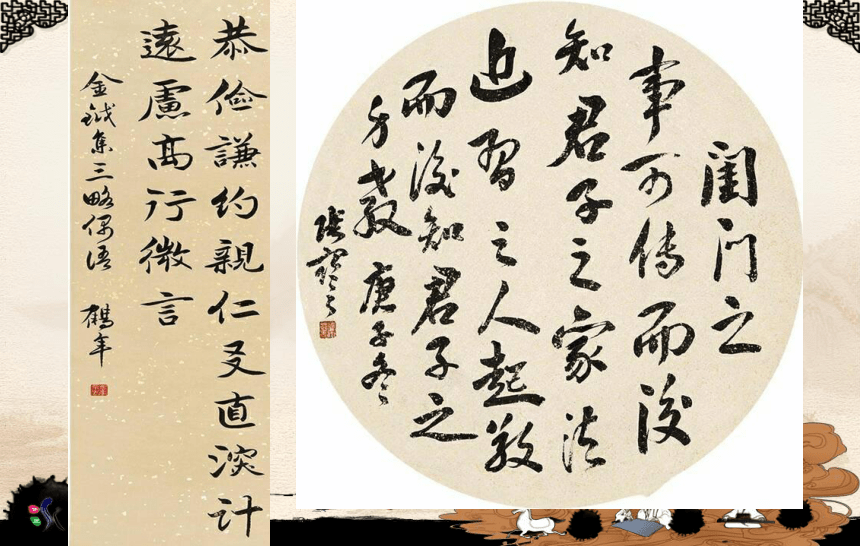 恭儉謙約親仁友直深計
遠慮高行微言
金鉞集三略偶語 鶴年
閨門之
事可傳而後
知君子之家法
近習之人起敬
而後知君子之
身教 庚子冬